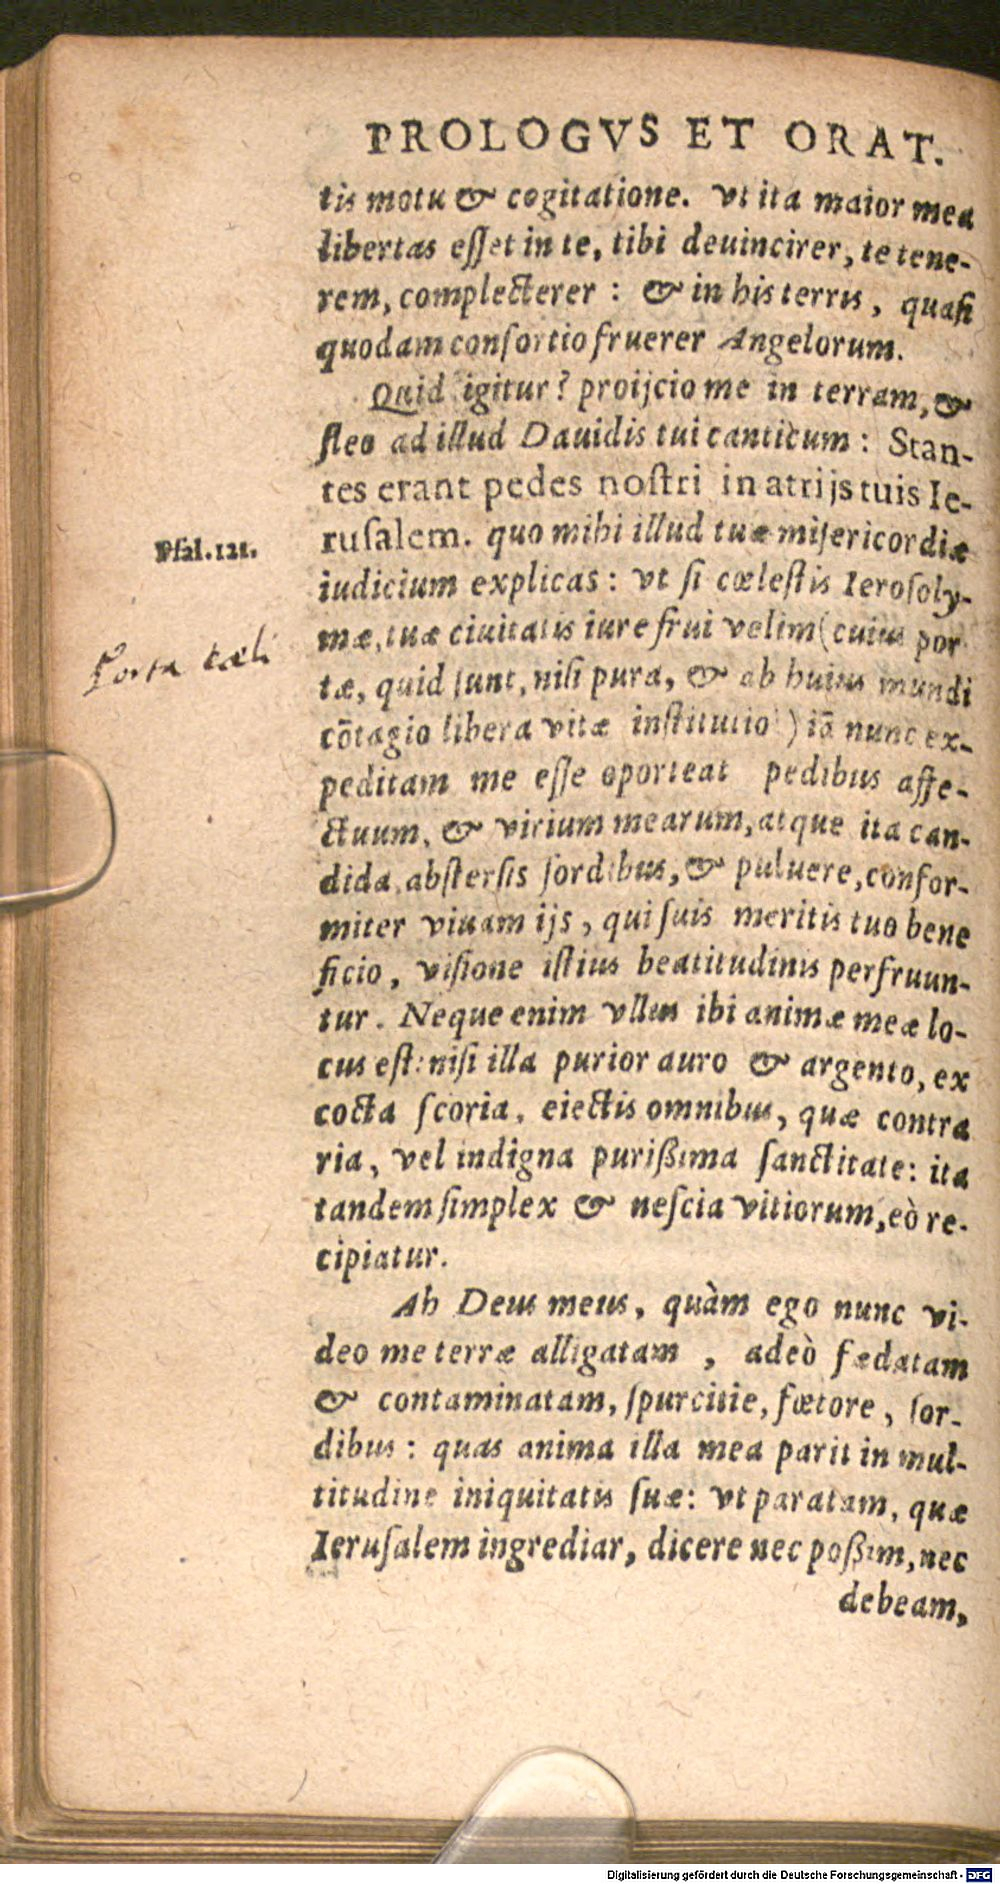 PROLOGVS ET ORAT.
tis motu & cogitatione. Vt ita maior mea
libertas eſſet in te, tibi deuincirer, te tene-
rem, complecterer : & in his terris, quaſi
quodam conſortio fruerer Angelorum.
Quid igitur? proijcio me in terram, &
fleo ad illud Dauidis tui canticum : Stan-
tes erant pedes noſtri in atrijs tuis Ie-
Pſal.121.
ruſalem. quo mihi illud tuæ miſericordiæ
iudicium explicas : vt ſi cœleſtis Ieroſoly-
Porta cæli
mæ, tuæ ciuitatis iure frui velim (cuius por
tæ, quid ſunt, niſi pura, & ab huius mundi
cōtagio libera vitæ inſtitutio) iā nunc ex-
peditam me eſſe oporteat pedibus affe-
ctuum, & virium mearum, atque ita can-
dida, abſterſis ſordibus, & puluere, confor-
miter viuam ijs, qui ſuis meritis tuo bene
ficio, viſione iſtius beatitudinis perfruun-
tur. Neque enim vllus ibi animæ meæ lo-
cus eſt: niſi illa purior auro & argento, ex
cocta ſcoria, eiectis omnibus, quæ contra
ria, vel indigna purißima ſanctitate: ita
tandem ſimplex & neſcia vitiorum, eò re-
cipiatur.
Ah Deus meus, quàm ego nunc vi-
deo me terræ alligatam , adeò fœdatam
& contaminatam, ſpurcitie, fœtore, ſor-
dibus : quas anima illa mea parit in mul-
titudine iniquitatis ſuæ: vt paratam, quæ
Ieruſalem ingrediar, dicere nec poßim, nec
debeam,
Digitalisierung gefördert durch die Deutsche Forschungsgemeinschaft - DFG